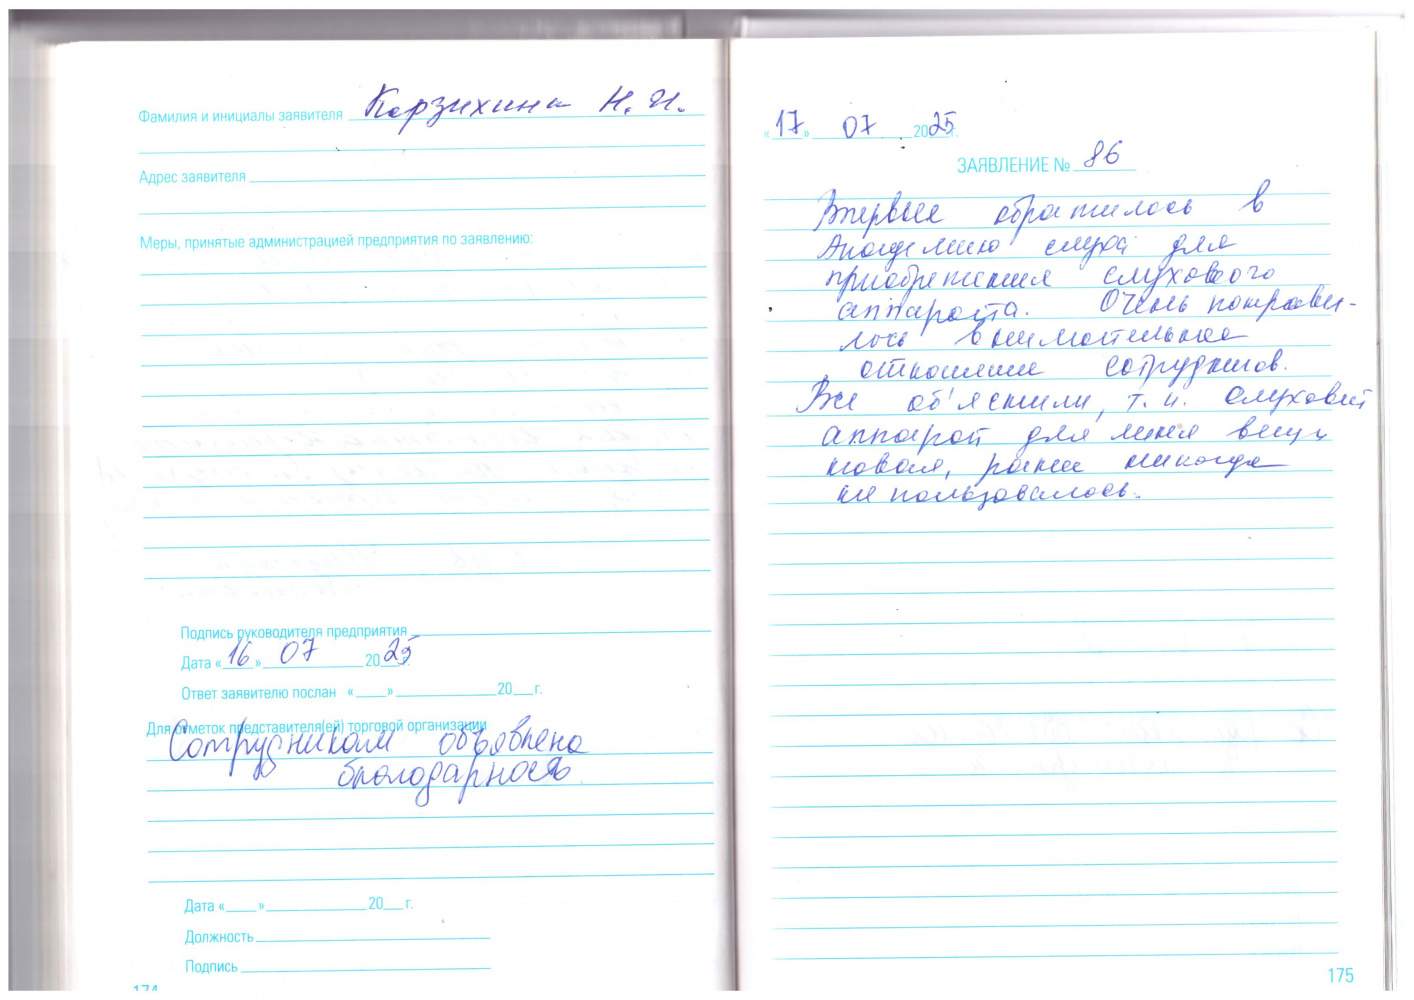 Фамилия и инициалы заявителя Корзихина Н. И.
Адрес заявителя
Меры, принятые администрацией предприятия по заявлению:
Подпись руководителя предприятия
Дата «16» 07 2025 г.
Ответ заявителю послан « » 20 г.
Для отметок представителя(ей) торговой организации
Сотрудникам объявлена
благодарность.
Дата « » 20 г.
Должность
Подпись
174
«17» 07 2025 г.
ЗАЯВЛЕНИЕ № 86
Впервые обратилась в
Академию слуха для
приобретения слухового
аппарата. Очень понрави-
лось внимательное
отношение сотрудников.
Все об'яснили, т.к. слуховой
аппарат для меня вещь
новая, ранее никогда
не пользовалась.
175